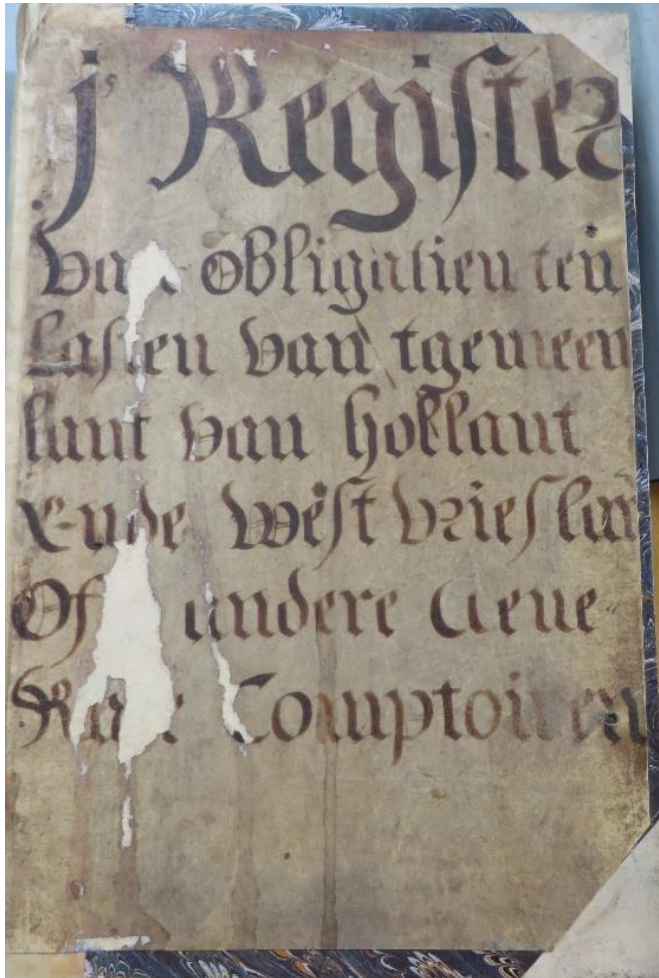 j Register
van obligatien ten
lasten van tgemeen
lant van hollant
Ende west vrieslan
Of andere Gene
Rale Comptoiren